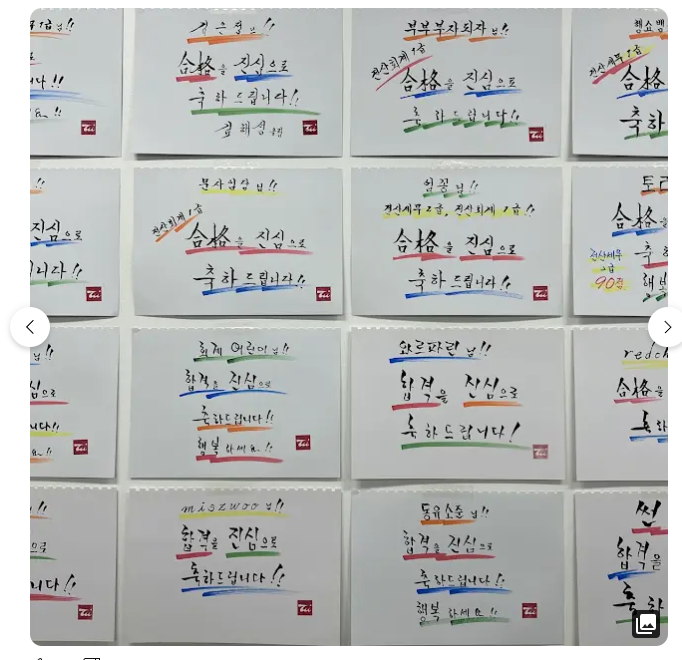 님!!
김은정 님!!
合格을 진심으로
축하드립니다!!
부부부자되자 님!!
전산회계 1급
合格을 진심으로
축하드립니다!!
행쇼뱅
전산세무 1급
合格
축하
진심으로
문사십상 님!!
전산회계 1급
合格을 진심으로
축하드립니다!!
님!!
전산세무 2급, 전산회계 1급!!
合格을 진심으로
축하드립니다!!
토리
合格을
전산세무
2급
90점
축하
행복
님!!
회계 어린이 님!!
합격을 진심으로
축하드립니다!!
행복하세요!!
와르파린 님!!
합격을 진심으로
축하드립니다!
合格을
축하
miszwoo 님!!
합격을 진심으로
축하드립니다!!
동유소준 님!!
합격을 진심으로
축하드립니다!!
행복하세요!!
썬
합격을
축하